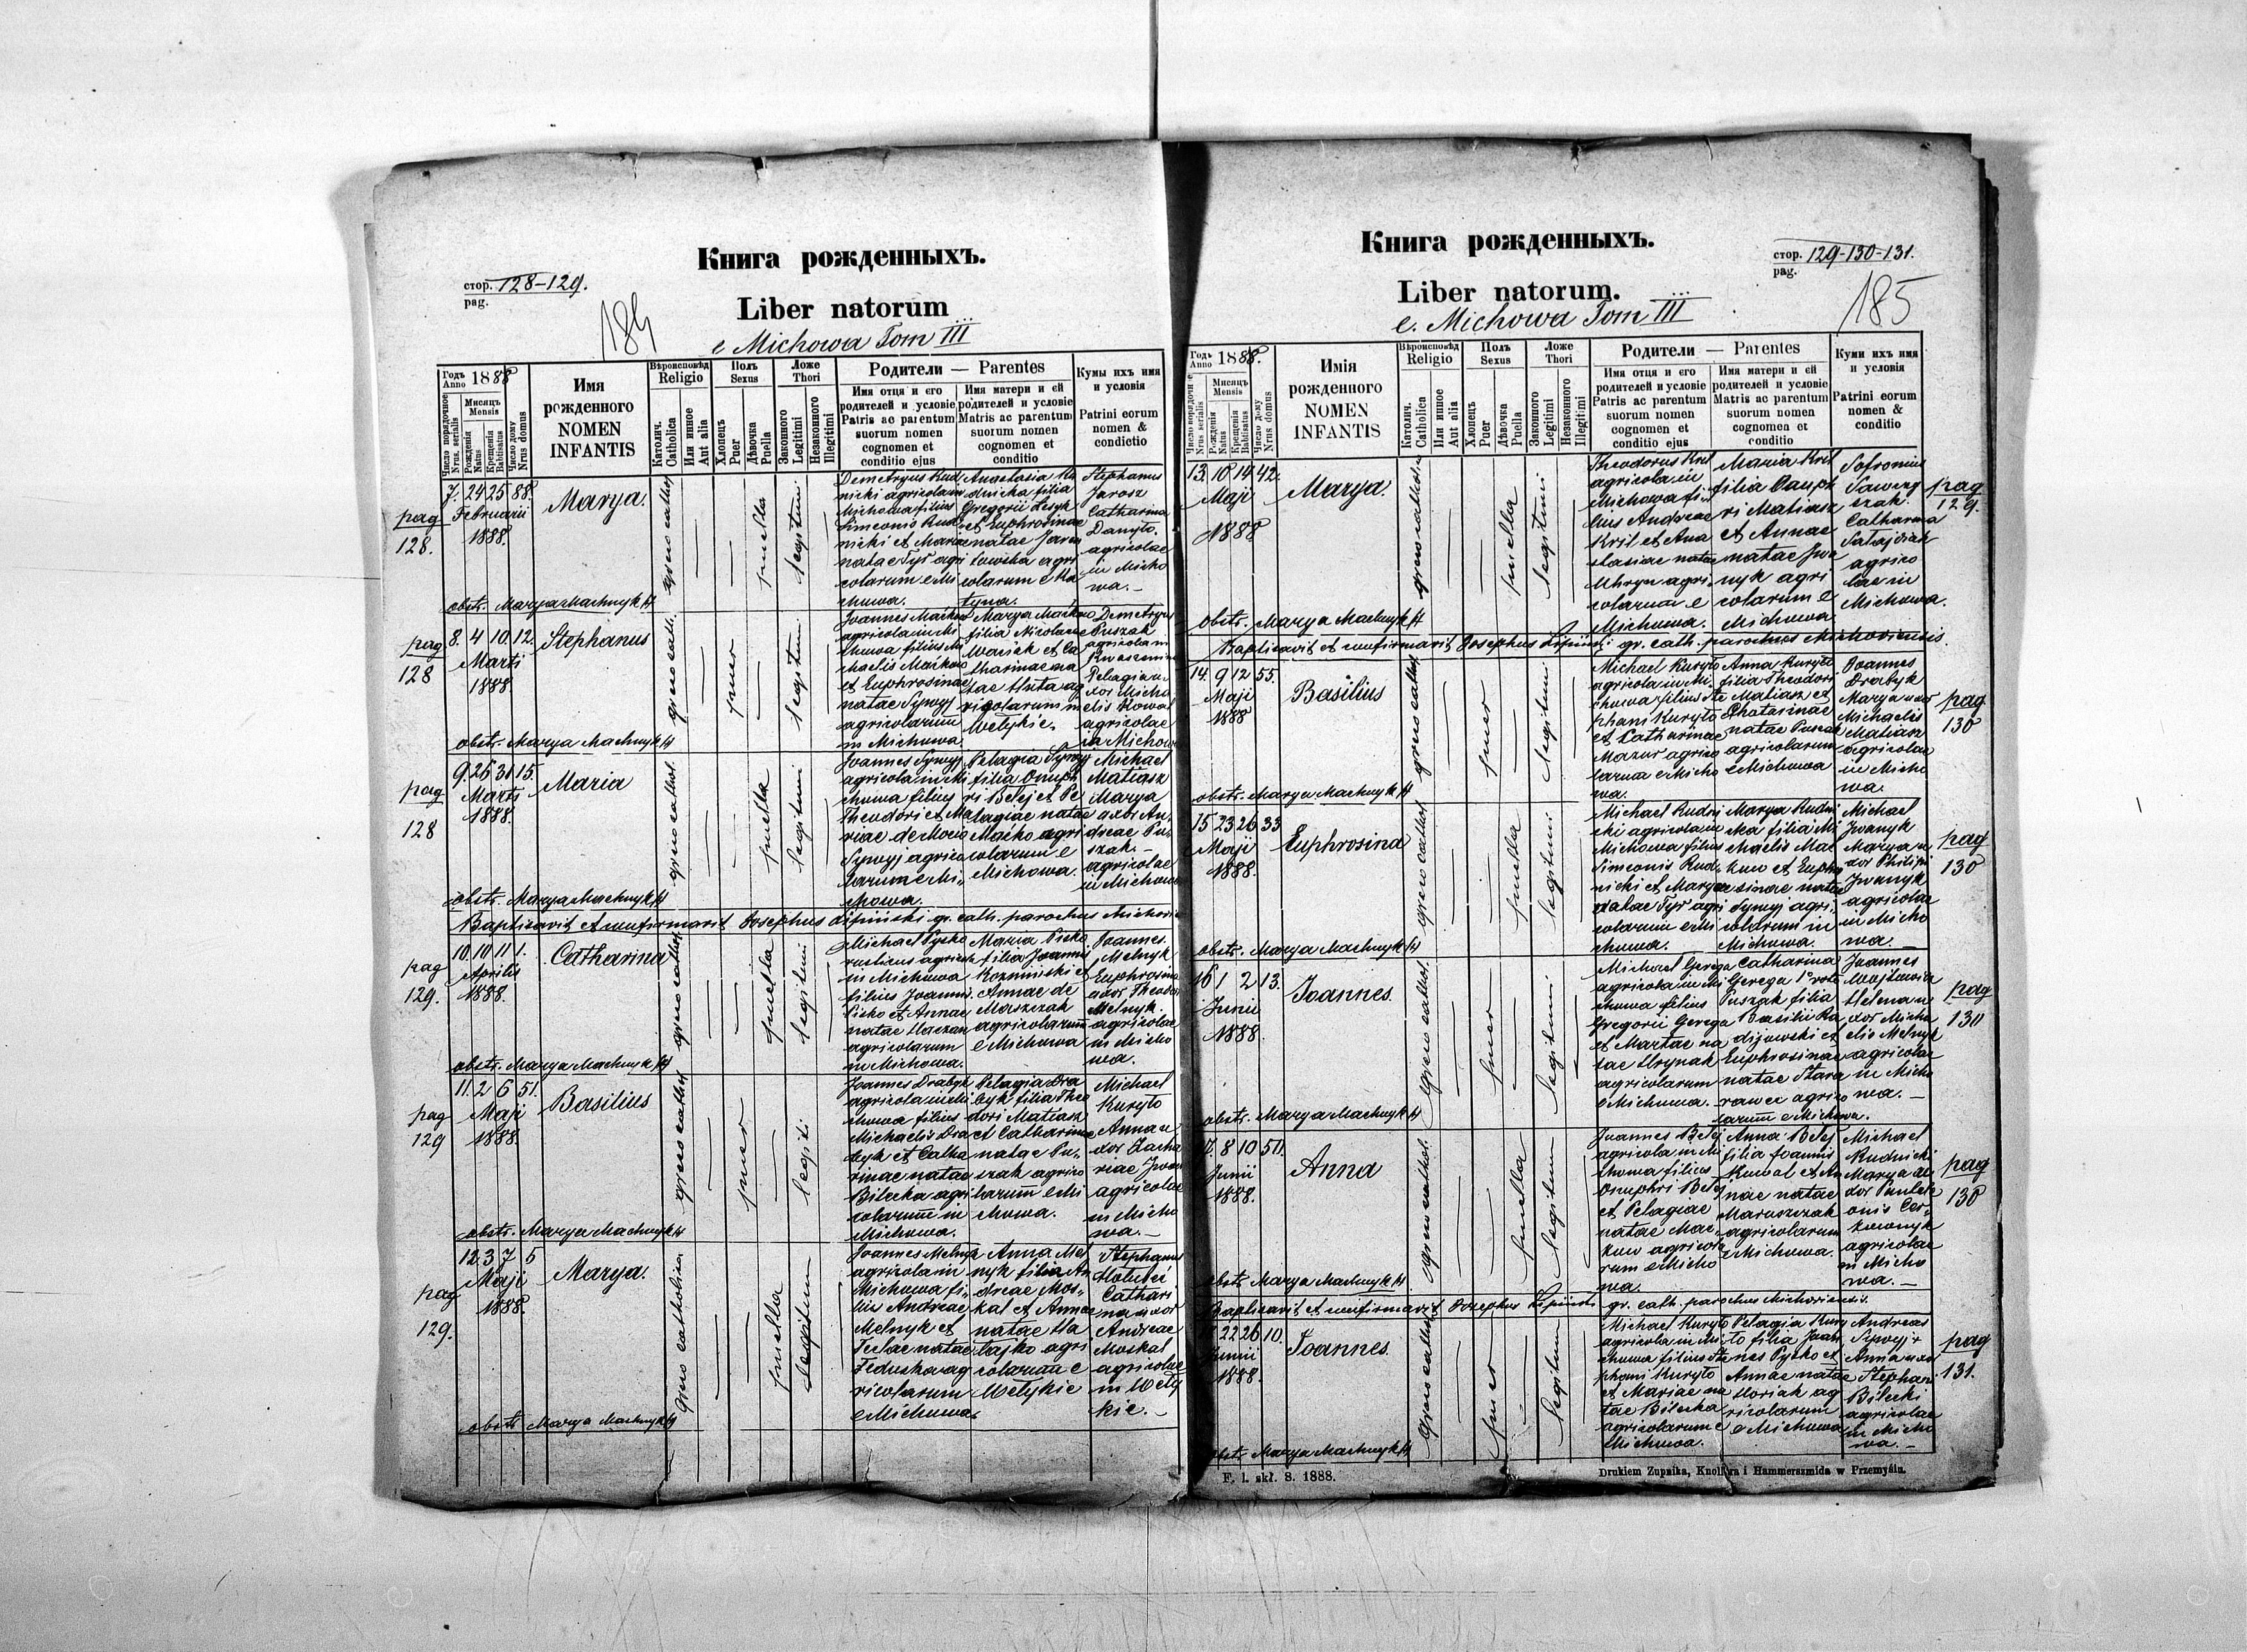 Книга рожденныхъ.
стор. 128-129.
pag.
184
Liber natorum
e Michowa Tom III
Годъ Anno 1888
Число порядочное Nrus. serialis
Мисяцъ Mensis
Рожденія Natus
Крещенія Babtisatus
Число дому Nrus domus
Имя рожденного
NOMEN INFANTIS
Вѣроисповѣд Religio
Католич. Catholica
Или инное Aut alia
Полъ Sexus
Хлопецъ Puer
Дѣвочка Puella
Ложе Thori
Законного Legitimi
Незаконного Illegitimi
Родители — Parentes
Имя отця и его родителей и условіе
Patris ac parentum suorum nomen cognomen et conditio ejus
Имя матери и ей родителей и условіе
Matris ac parentum suorum nomen cognomen et conditio
Кумы ихъ имя и условія
Patrini eorum nomen & condictio
pag 128.
7. 24 25 88.
Februarii
1888.
Marya.
greco cathol
puella
legitimi
Demetryus Rud
nicki agricola in
Michowa filius
Simeonis Rud
nicki et Mariae
natae Tyś agri
colarum e Mi
chowa.
Anastasia Ru
dnicka filia
Gregorii Lesyk
et Euphrosinae
natae
agri
colarum e Ha
Stephanus
Jarosz
Catharina
Danyło.
agricolae
in Micho
wa.-
obstr. Marya Machnyk
pag 128
8. 4 10 12.
Marti
1888.
Stephanus
greco cath.
puer
legitimi
Joannes
agricola in Mi
chowa filius Mi
chaelis
et Euphrosinae
natae Sywyj
agricolarum
in Michowa.
Marya
filia Nicolai
et Ca
tharinae na
tae Huta ag
ricolarum in
Wełykie.
Demetryus
Puszak
agricola in
Pelagia u
xor Micha
elis Kowal
agricolae
in Michow
obstr. Marya Machnyk
pag 128
9. 25 31 15.
Marti
1888.
Maria
greco cathol.
puella
legitimi
Joannes Sywyj
agricola in Mi
chowa filius
Theodori et Ma
riae de
Sywyj agrico
larum e Mi
chowa.
Pelagia Sywyj
filia Onuph
ri Bełej et Pe
lagiae natae
Maćko agri
colarum e
Michowa.
Michael
Matiasz
Marya
uxor An
dreae Pu
szak.-
agricolae
in Michowa
obstr. Marya Machnyk
Baptisavit et confirmavit Josephus Lipiński gr. cath. parochus Michovi
pag 129.
10. 10 11 1.
Aprilis
1888.
Catharina
greco cathol
puella
legitimi
Michael Pysko
rusticus agricola
in Michowa
filius Joannis
Pisko et Annae
natae Haczan
agricolarum
in Michowa.
Maria Pisko
filia Joannis
Kozminski et
Annae de
Maszczak
agricolarum
e Michowa
Joannes
Melnyk
Euphrosina
uxor Theodori
Melnyk.
agricolae
in Micho
wa.
obstr. Marya Machnyk
pag 129
11. 2 6 51.
Maji
1888.
Basilius
greco cathol
puer
legiti:
Joannes Drabyk
agricola in Mi
chowa filius
Michaelis Dra
byk et Catha
rinae natae
Bilecka agri
colarum in
Michowa.
Pelagia Dra
byk filia Theo
dori Matiasz
et Catharinae
natae Pu
szak agrico
larum e Mi
chowa.
Michael
Kuryło
Anna u
xor Zacha
riae
agricolae
in Micho
wa.-
obstr. Marya Machnyk
pag 129.
12. 3 7 5
Maji
1888.
Marya.
greco catholica
puella
legitimi
Joannes Melnyk
agricola in
Michowa fi
lius Andreae
Melnyk et
Teclae natae
Feduska ag
ricolarum
e Michowa
Anna Mel
nyk filia An
dreae Mos
kal et Annae
natae Ha
łajko agri
colarum e
Wełykie
Stephanus
Cathari
na uxor
Andreae
Moskal
agricolae
in Weły
kie.-
obstr. Marya Machnyk
Книга рожденныхъ.
стор. 129-130-131.
pag.
185
Liber natorum.
e. Michowa Tom III
Годъ Anno 1888.
Число порядочное Nrus serialis
Мисяцъ Mensis
Рожденія Natus
Крещенія Babtisatus
Число дому Nrus domus
Имія рожденного
NOMEN INFANTIS
Вѣроисповѣд Religio
Католич. Catholica
Или инное Aut alia
Полъ Sexus
Хлопець Puer
Дѣвочка Puella
Ложе Thori
Законного Legitimi
Незаконного Illegitimi
Родители — Parentes
Имя отця и его родителей и условіе
Patris ac parentum suorum nomen cognomen et conditio ejus
Имя матери и ей родителей и условіе
Matris ac parentum suorum nomen cognomen et conditio
Куми ихъ имя и условія
Patrini eorum nomen & conditio
13. 10 14 42.
Maji
1888
Marya.
greco catholica
puella
legitimi
Theodorus Kril
agricola in
Michowa fi
lius Andreae
Kril et Ana
stasiae natae
Uhryn agri
colarum e
Michowa.
Maria Kril
filia
Matiasz
et Annae
natae Iwa
nyk agri
colarum e
Michowa
Sofronius
Catharina
agrico
lae in
Michowa.
pag 129.
obstr. Marya Machnyk
Baptisavit et confirmavit Josephus Lipiński gr. cath. parochus Michoviensis.
14. 9 12 55.
Maji
1888
Basilius
greco cathol
puer
legitimi
Michael Kuryło
agricola in Mi
chowa filius Ste
phani Kuryło
et Catharinae
Mazur agrico
larum e Micho
wa.
Anna Kuryło
filia Theodori
Matiasz et
Chatarinae
natae Puszak
agricolarum
e Michowa
Joannes
Drabyk
Marya uxor
Michaelis
Matiasz
agricolae
in Micho
wa.
pag 130
obstr. Marya Machnyk
15 23 26 33
Maji
1888.
Euphrosina
greco cathol
puella
legitimi
Michael Rudni
cki agricola in
Michowa filius
Simeonis Rud
nicki et Maryae
natae Tyś agri
colarum e Mi
chowa.
Marya Rudni
cka filia Mi
chaelis Mac
kow et Euphro
sinae natae
Sywyj agri
colarum in
Michowa.
Michael
Iwanyk
Marya u
xor Philipi
Iwanyk
agricolae
in Micho
wa.-
pag 130
obstr. Marya Machnyk
16 1 2 13.
Junii
1888
Joannes.
greco cathol.
puer
legitimi
Michael Gerega
agricola in Mi
chowa filius
Gregorii Gerega
et Martae na
tae Hrynak
agricolarum
e Michowa.
Catharina
Gerega 1º voto
Puszak filia
Basilii Ra
dijowski et
Euphrosinae
natae Stara
rawec agrico
larum e Michowa.
Joannes
Helena u
xor Micha
elis Melnyk
agricolae
in Micho
wa.-
pag 130
obstr. Marya Machnyk
17. 8 10 50.
Junii
1888.
Anna
greco cathol.
puella
legitimi
Joannes Bełej
agricola in Mi
chowa filius
Onuphri Bełej
et Pelagiae
natae Mac
kow agricola
rum e Micho
wa
Anna Bełej
filia Joannis
Kowal et An
nae natae
Maruszczak
agricolarum
e Michowa.
Michael
Rudnicki
Marya u
xor Pantele
onis Cer
kownyk
agricolae
in Micho
wa.-
pag 130
obstr. Marya Machnyk
Baptisavit et confirmavit Josephus Lipiński gr. cath. parochus Michoviensis.
22 26 10.
Junii
1888.
Joannes.
greco cathol
puer
legitimi
Michael Kuryło
agricola in Mi
chowa filius Ste
phani Kuryło
et Mariae na
tae Bilecka
agricolarum e
Michowa.
Pelagia Kury
ło filia Joan
nes Pysko et
Annae natae
Horiak ag
ricolarum
e Michowa
Andreas
Sywyj
Anna uxor
Stephan
Bilecki
agricolae
in Micho
wa.-
pag 131.
obstr. Marya Machnyk
F. l. skł. 8. 1888.
Drukiem Zupnika, Knollera i Hammerszmida w Przemyślu.